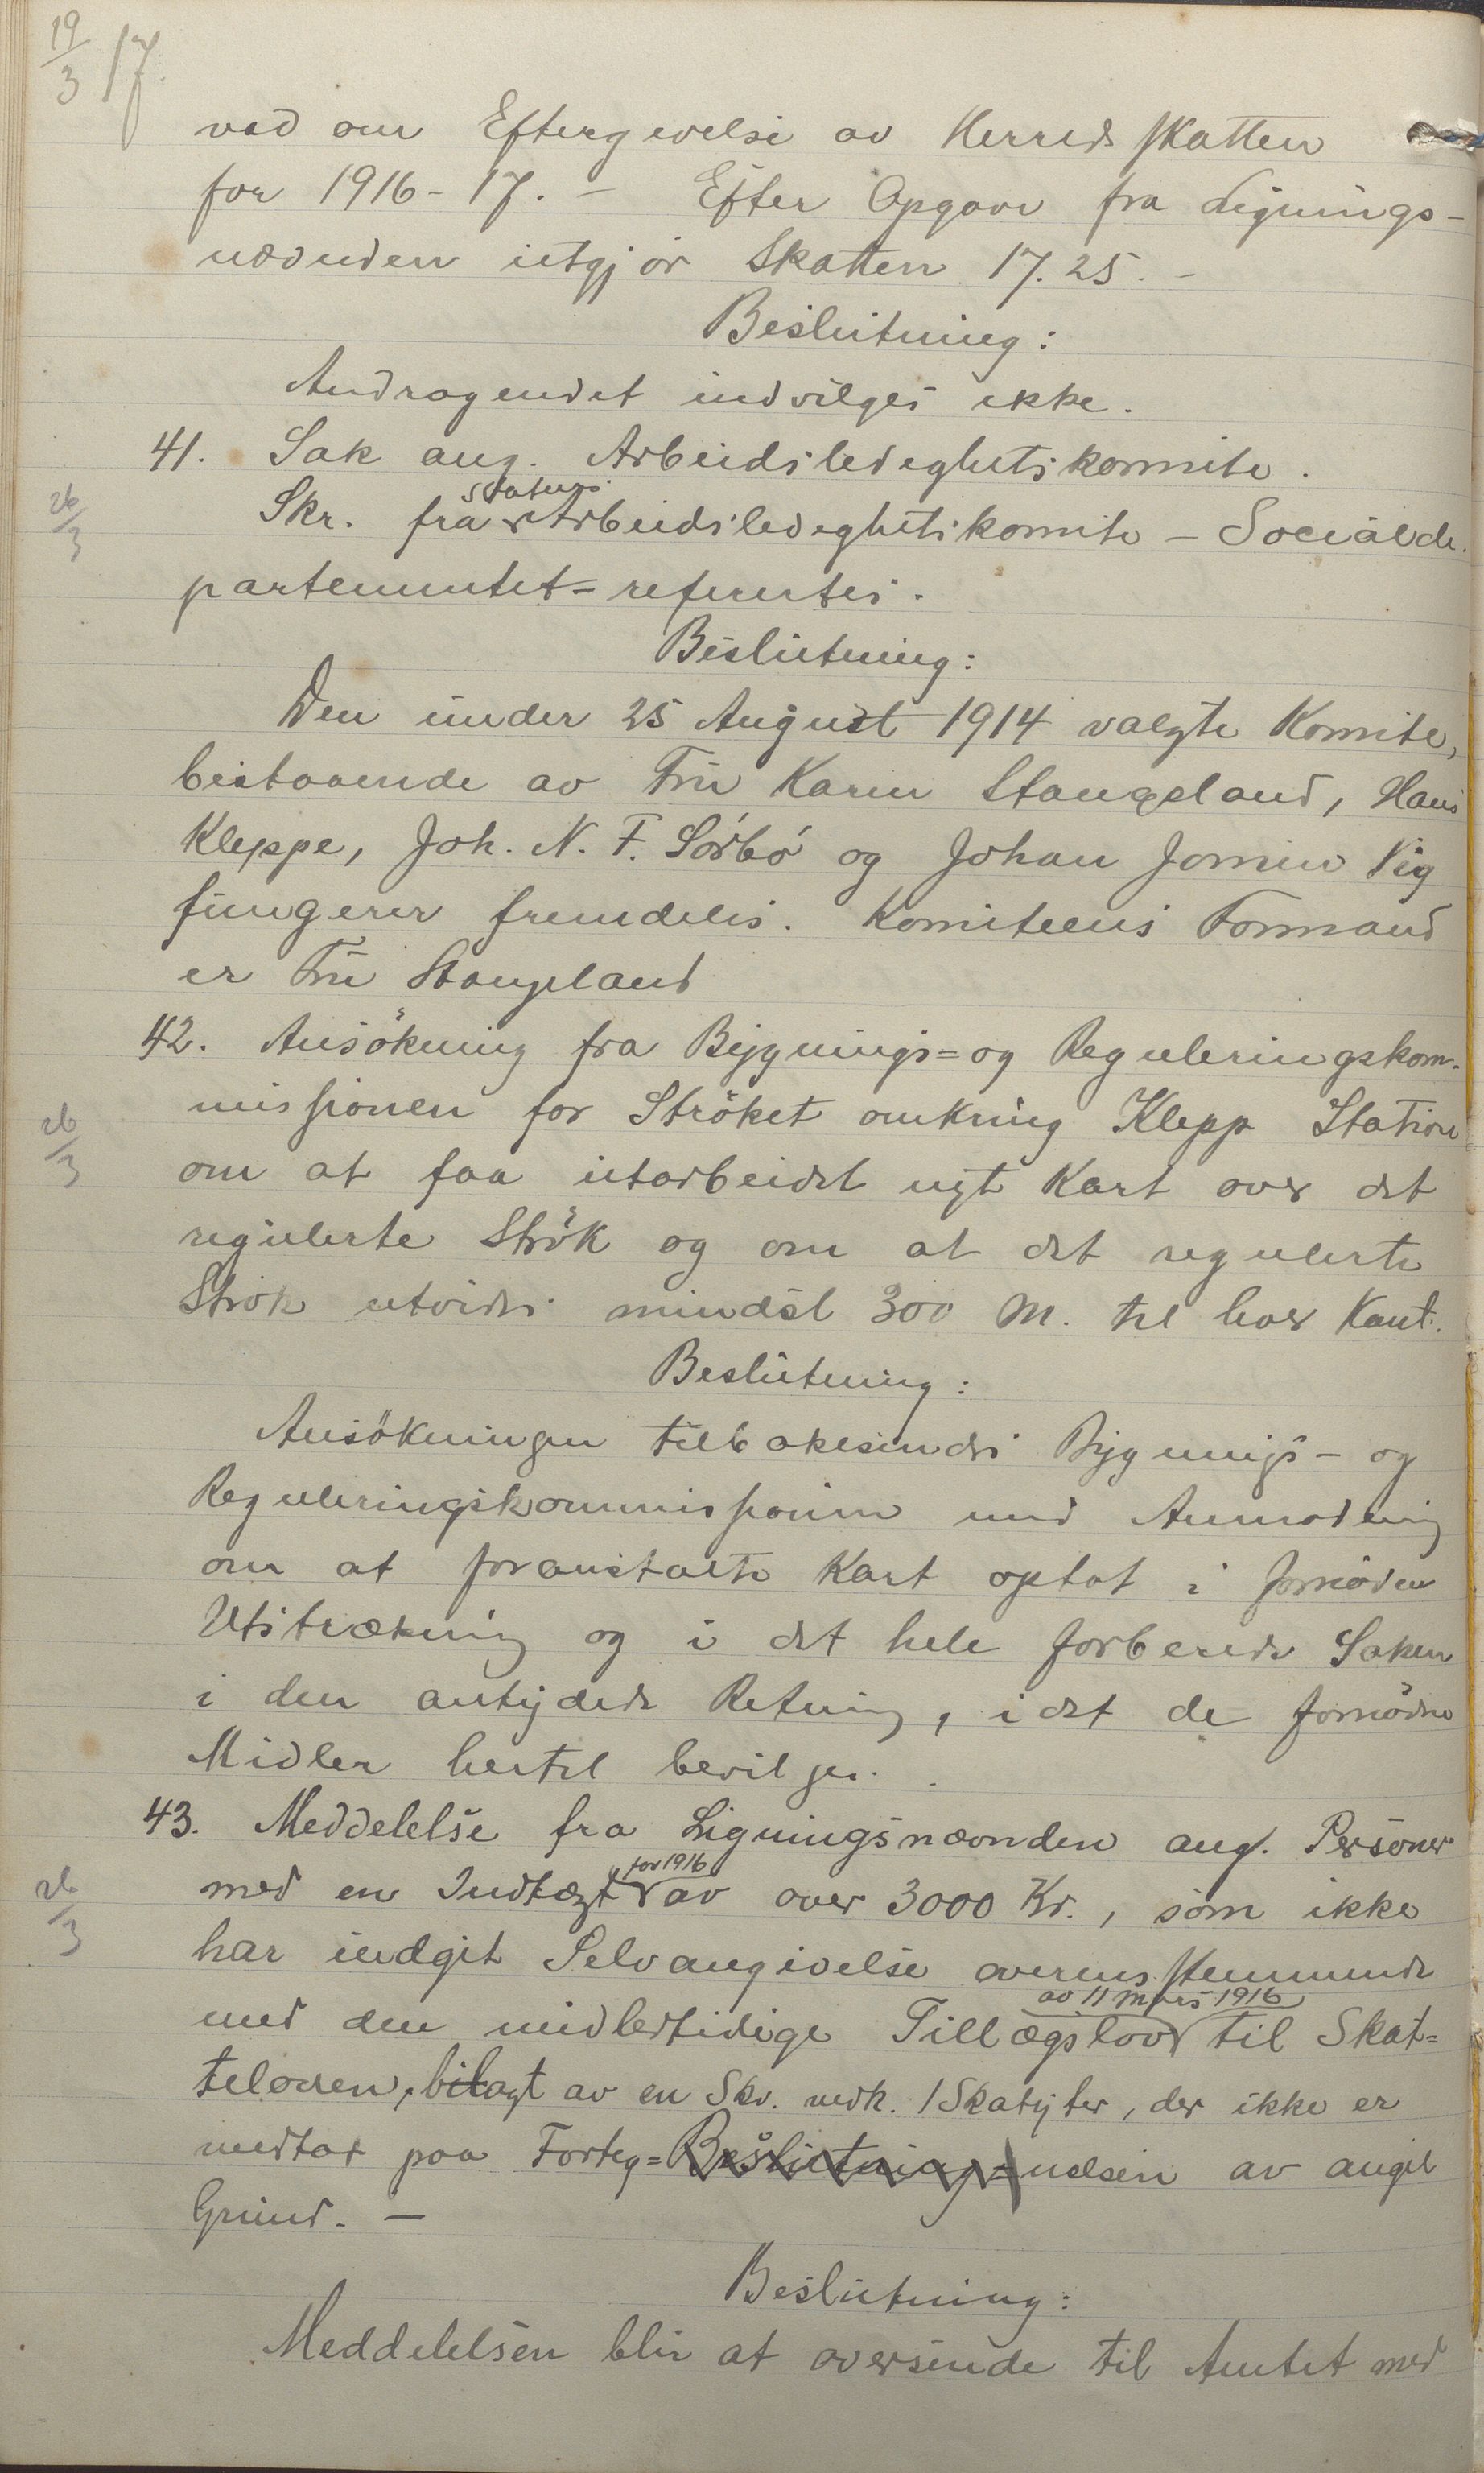 19/3 17.
vad om Eftergivelse av Herredsskatten
for 1916-17. - Efter Opgave fra Lignings-
nævnden utgjör Skatten 17.25. -
Beslutning:
Andragendet indvilges ikke.
41. Sak ang. Arbeidsledeghetskomite.
26/3
Skr. fra Statens Arbeidsledeghetskomite - Socialde-
partementet = refertes.
Beslutning:
Den under 25 August 1914 valgte Komite,
bestaaende av Fru Karen Stangeland, Hans
Kleppe, Joh. N. F. Sörbö og Johan Jonsen Vig
fungerer fremdeles. Komiteens Formand
er Fru Stangeland
42. Ansökning fra Bygnings= og Reguleringskom-
26/3
missionen for Ströket omkring Klepp Station
om at faa utarbeidet nyt Kart over det
regulerte Strök og om at det regulerte
Strök utvides mindst 300 M. til hver Kant.
Beslutning:
Ansökningen tilbakesendes Bygnings- og
Reguleringskommissionen med Anmodning
om at foranstalte Kart optat i fornöden
Utstrækning og i det hele forberede Saken
i den antydede Retning, idet de fornödne
Midler hertil bevilges.
43. Meddelelse fra Ligningsnævnden ang. Personer
26/3
med en Indtægt for 1916 av over 3000 Kr., som ikke
har indgit Selvangivelse overensstemmende
med den midlertidige Tillægslov av 11 Mars 1916 til Skat=
teloven, bilagt av en Skr. vedk. 1 Skatyter, der ikke er
medtat paa Forteg= Beslutning = nelsen av angit
Grund. -
Beslutning:
Meddelelsen blir at oversende til Amtet med